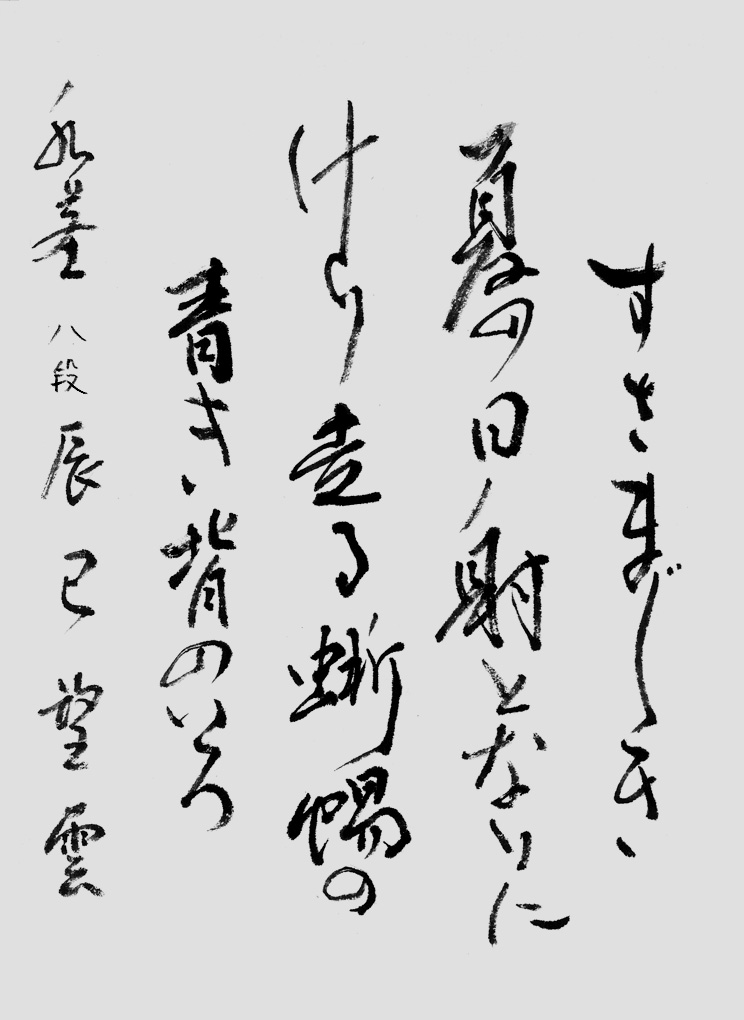 すさまじき
夏の日射となりに
けり走る蜥蜴の
青き背のいろ
水莖 八段 辰巳望雲